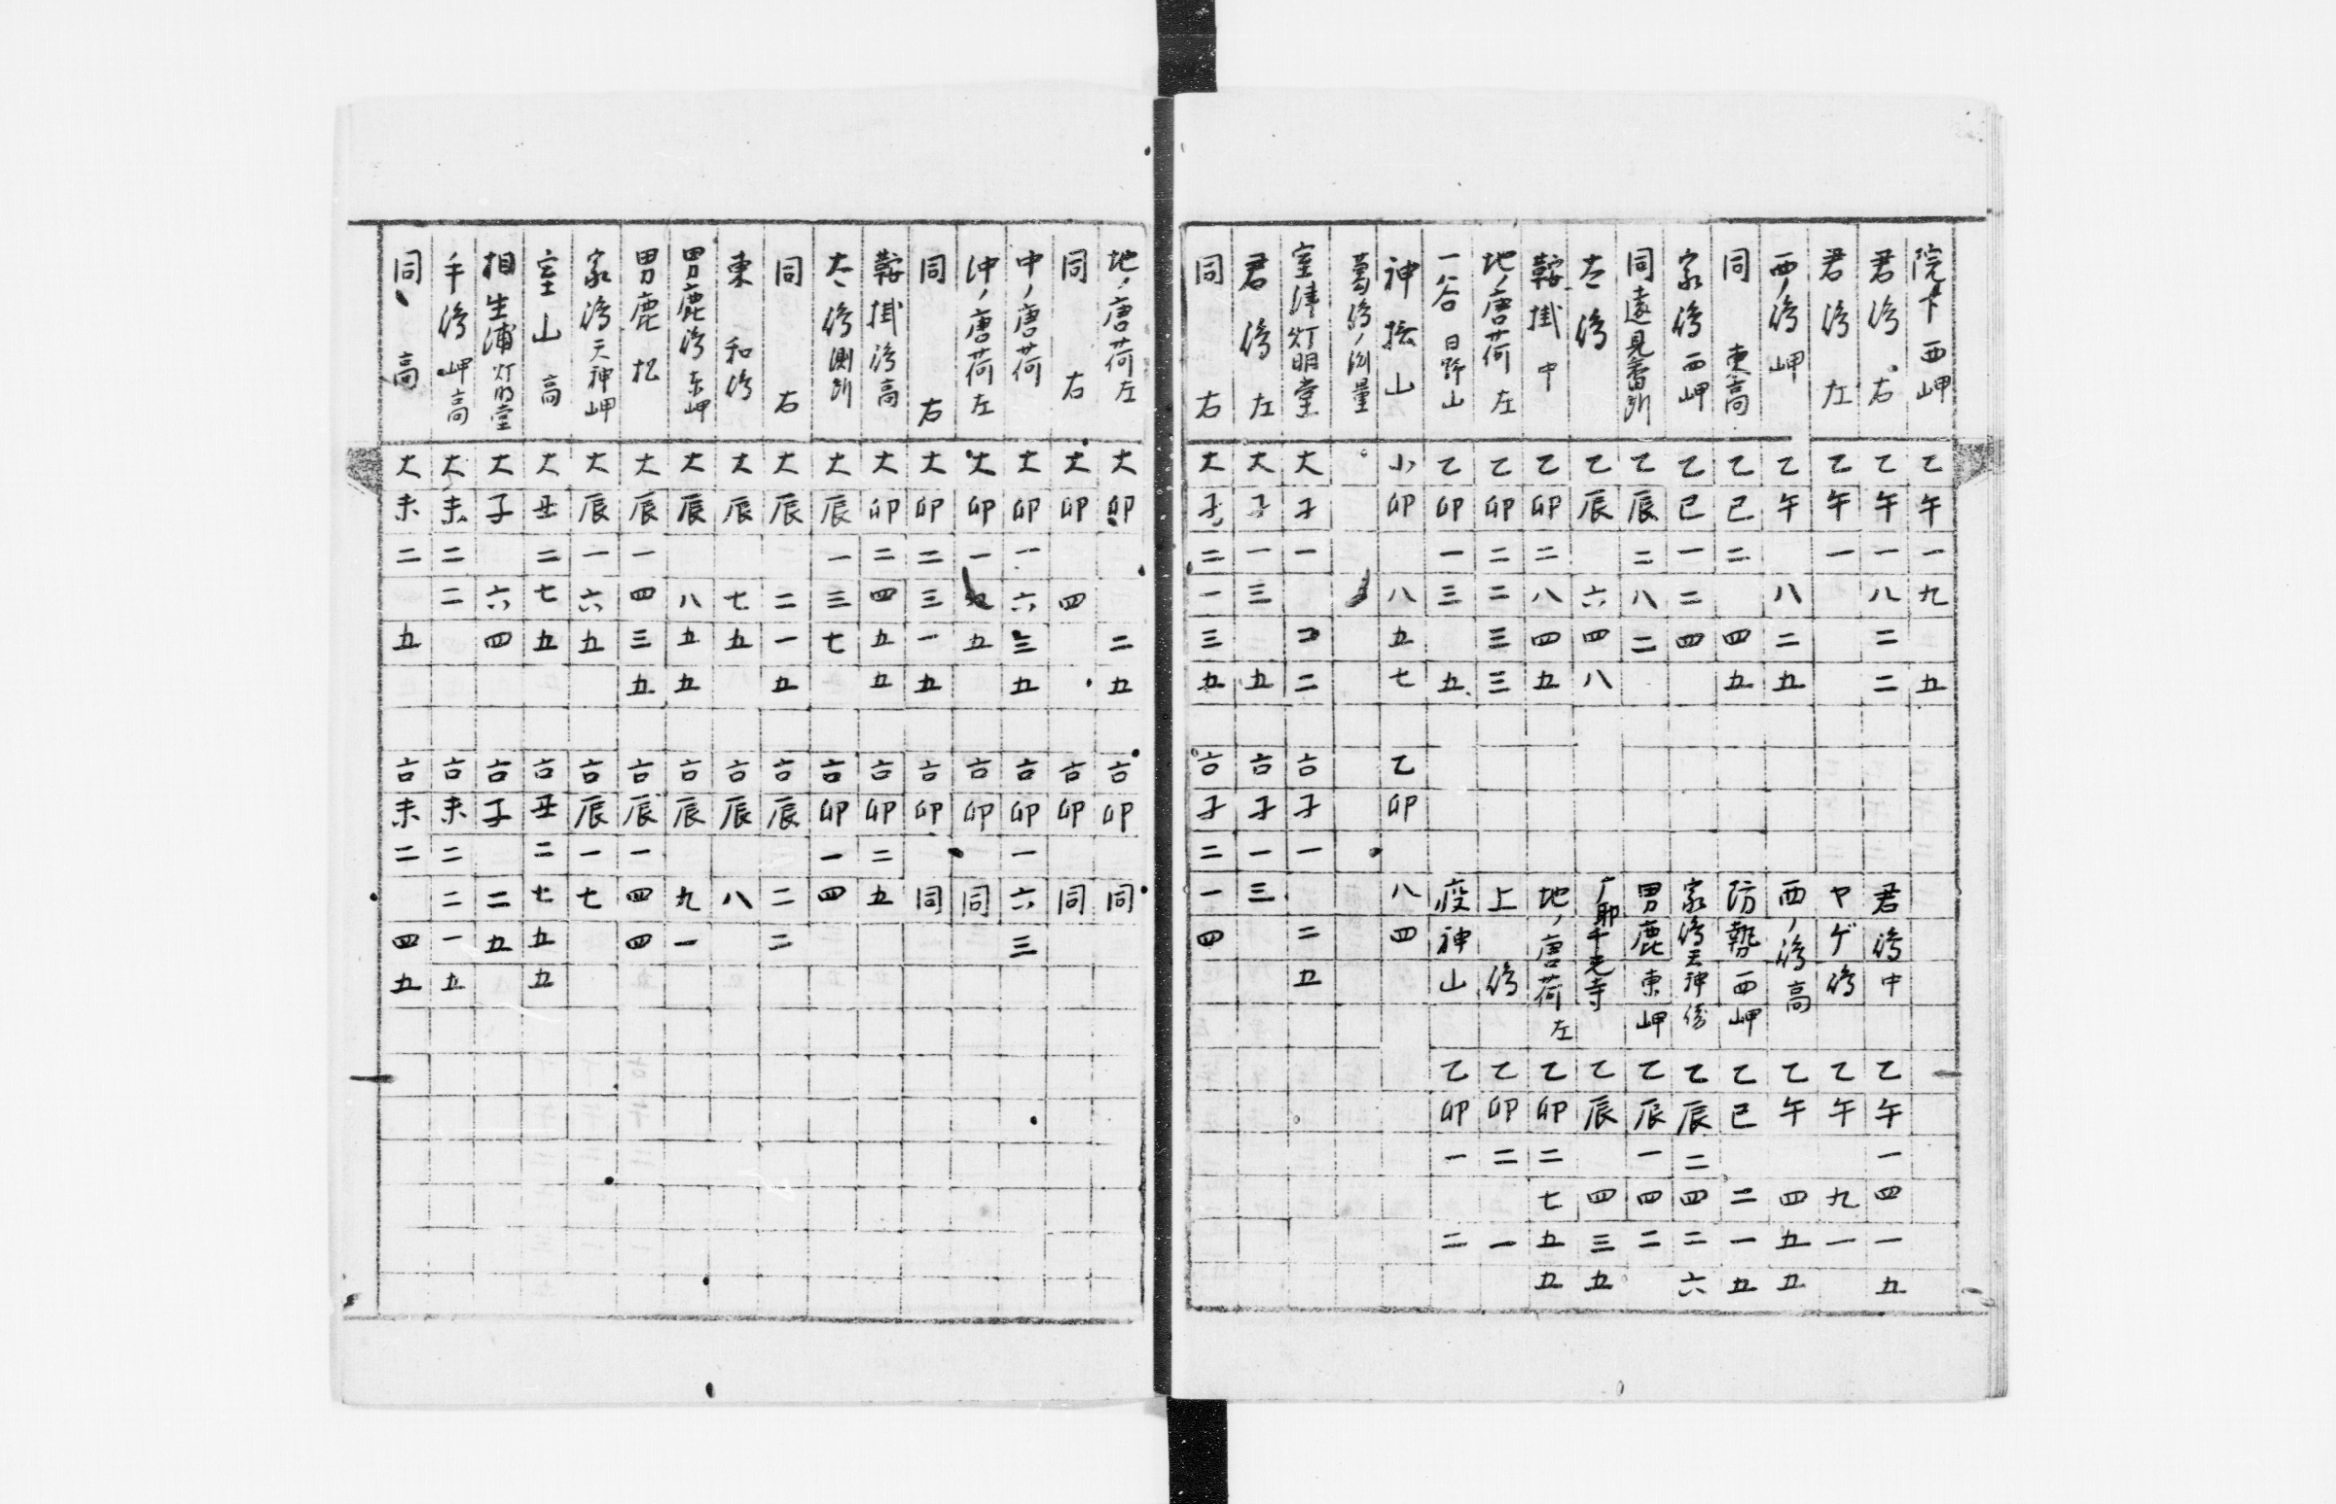 院下西岬 乙午一九 五
君湾右 乙午一八二二 君湾中 乙午一四一五
君湾左 乙午一 ヤゲ湾 乙午 九一
西ノ湾岬 乙午 八二五 西ノ湾高 乙午 四五五
同 東高 乙巳二 四五 防勢西岬 乙巳 二一五
家湾西岬 乙巳一二四 家湾天神 乙辰二四二六
同遠見番所 乙辰二八二 男鹿東岬 乙辰一四二
太湾 乙辰 六四八 千光寺 乙辰 四三五
鞍掛中 乙卯二八四五 地ノ唐荷左 乙卯二七五五
地ノ唐荷左 乙卯二二三三 上湾 乙卯二 一
一谷日野山 乙卯一三 五 疫神山 乙卯一 二
神撫山 小卯 八五七 乙卯 八四
葛湾ノ測量
室津灯明堂 大子一 二二 吉子一 二五
君湾左 大子一三 五 吉子一三
同 右 大子二一三五 吉子二一四
地ノ唐荷左 大卯 二五 吉卯 同
同 右 大卯 四 吉卯 同
中ノ唐荷 大卯一六三五 吉卯一六三
沖ノ唐荷左 大卯一 五 吉卯 同
同 右 大卯二三一五 吉卯 同
鞍掛湾高 大卯二四五五 吉卯二五
太湾測所 大辰一三七 吉卯一四
同 右 大辰 二一五 吉辰 二二
東和湾 大辰 七五 吉辰 八
男鹿湾東岬 大辰 八五五 吉辰 九一
男鹿松 大辰一四三五 吉辰一四四
家湾天神岬 大辰一六五 吉辰一七
室山高 大丑二七五 吉丑二七五五
相生浦灯明堂 大子 六四 吉子 二五
手湾岬高 大未二二 吉未二二一五
同 高 大未二 五 吉未二 四五